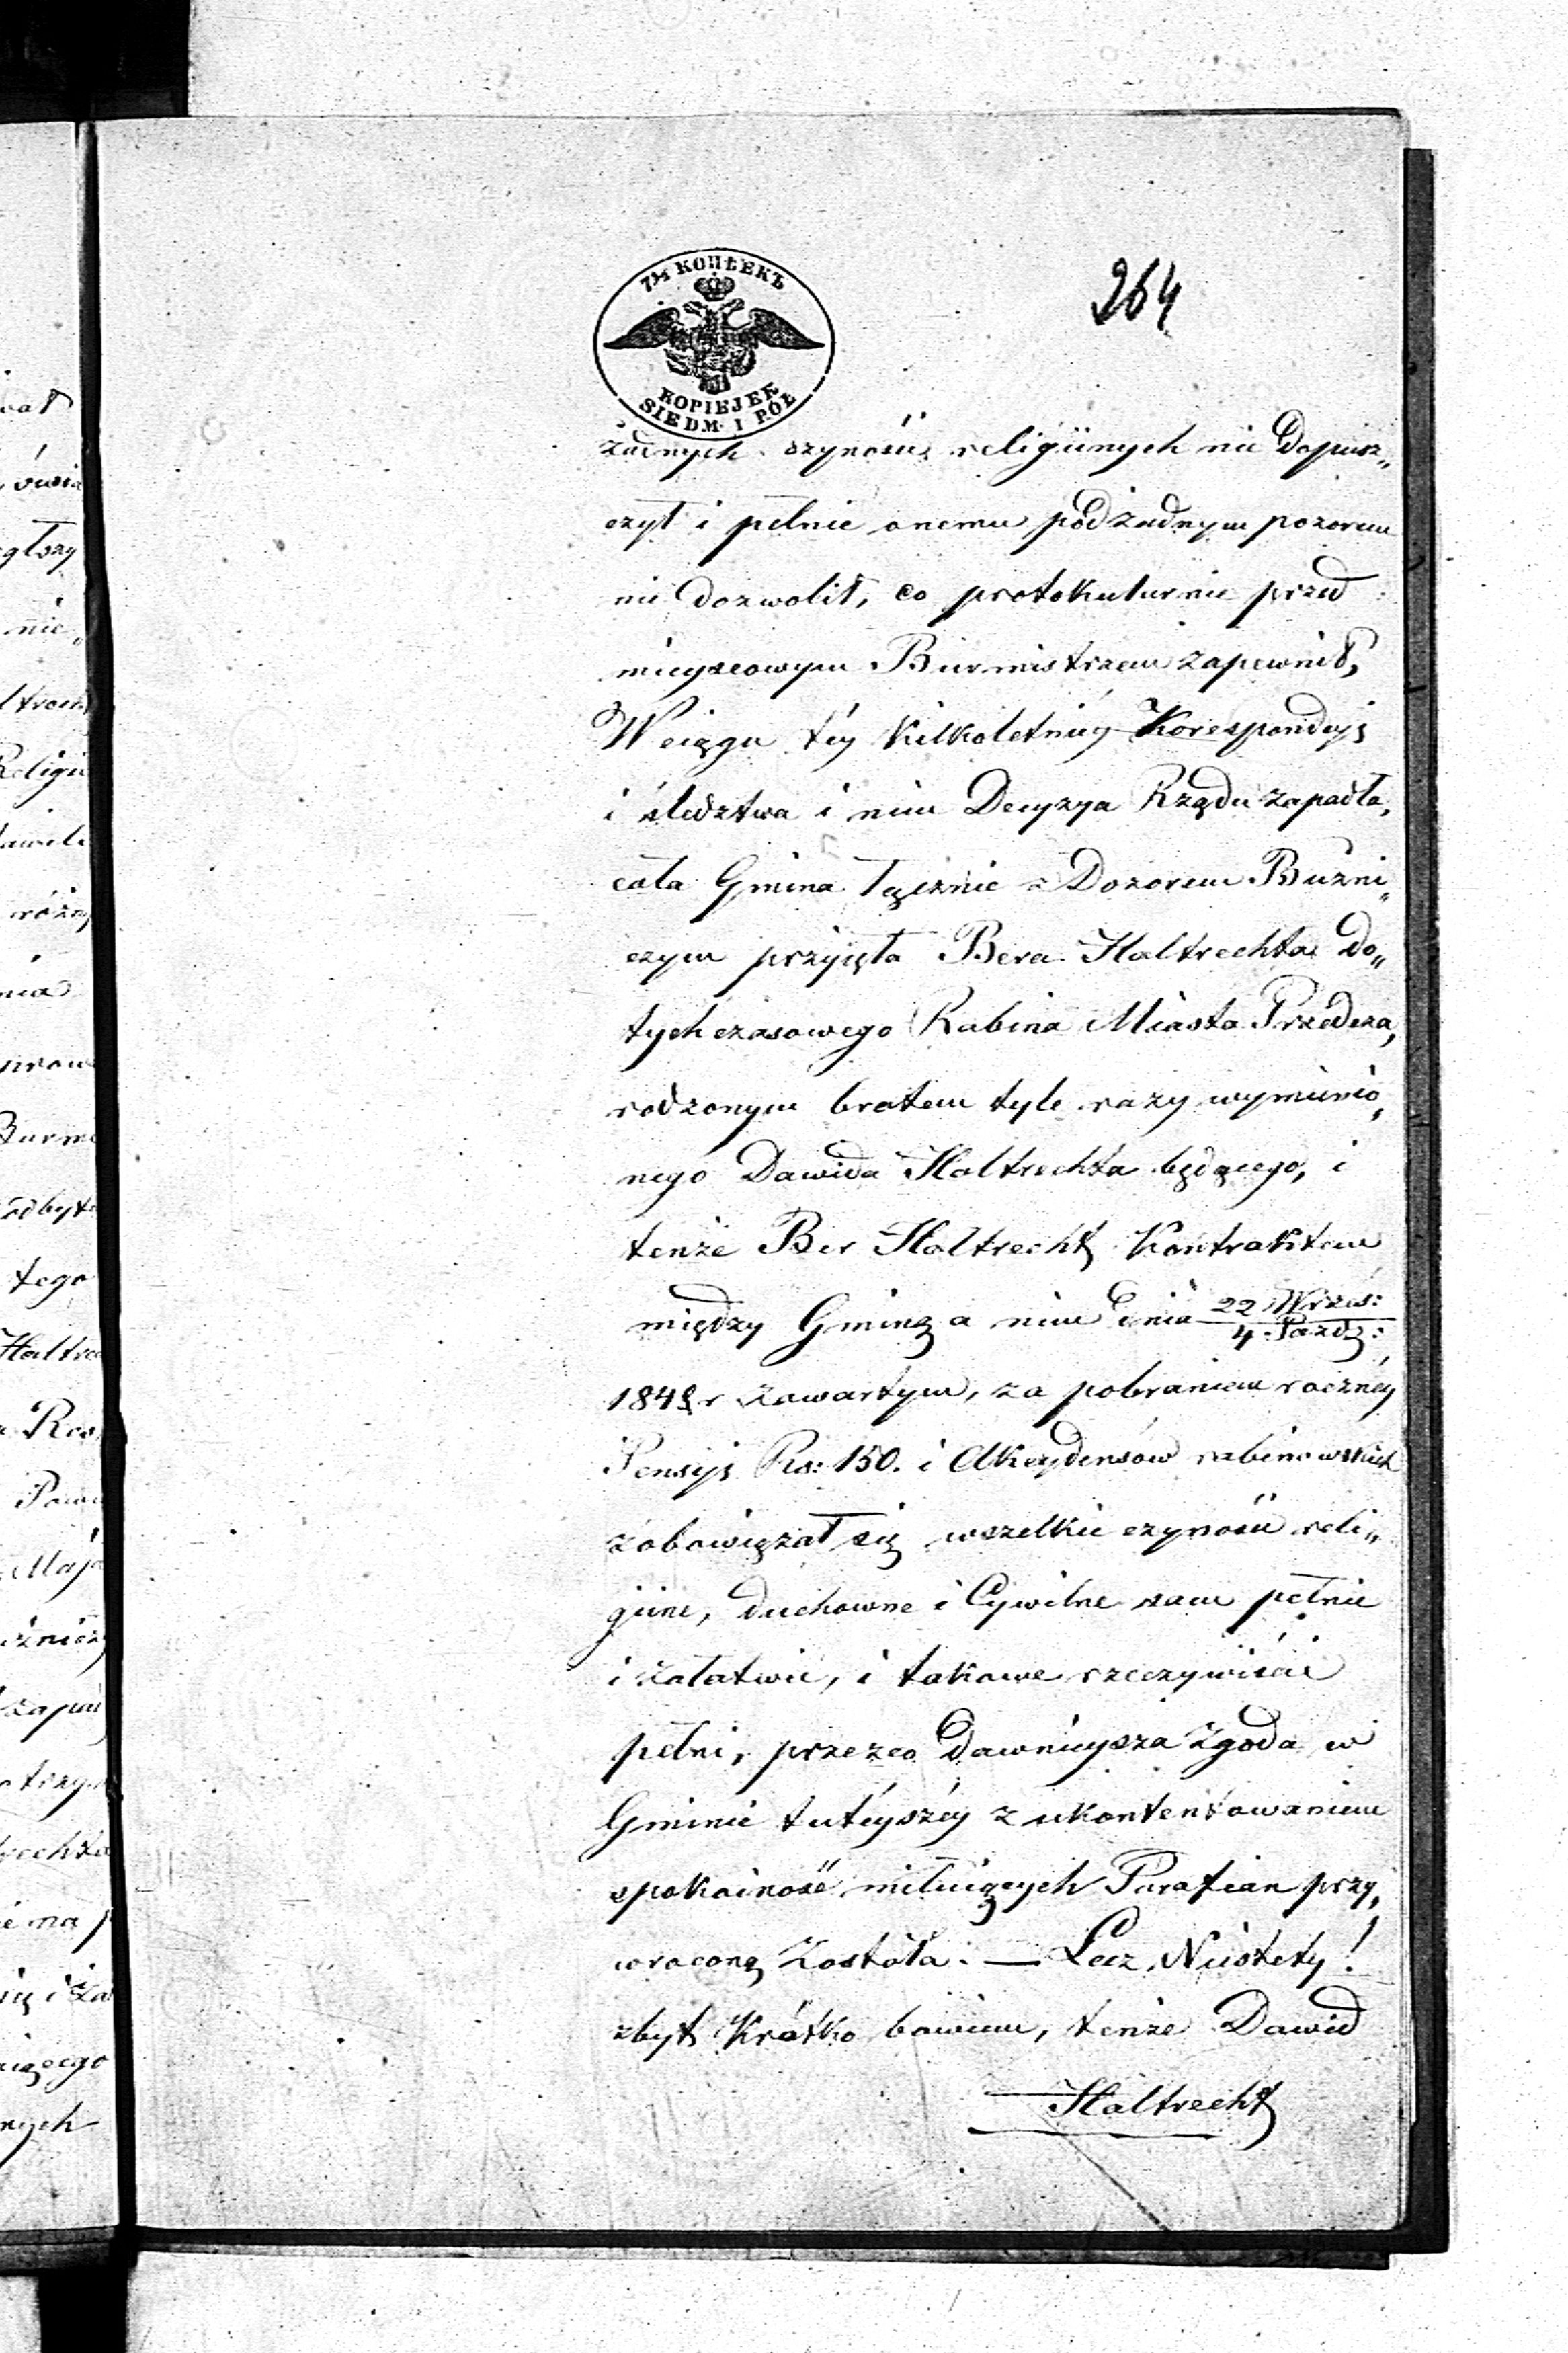 264
7½ КОПѢЕКЪ
KOPIEJEK
SIEDM I PÓŁ
żadnych czynności religiinych nie dopusz„
czył i pełnie onemu pod żadnym pozorem
nie dozwolił, co protokularnie przed
mieyscowym Burmistrzem zapewnił,
W ciągu téy kilkoletniéy Korespondcyi
i śledztwa i nim Decyzya Rządu zapadła,
cała Gmina łącznie z Dozorem Bużni„
czym przyięła Bera Haltrechta do„
tychczasowego Rabina Miasta Przedcza,
rodzonym bratem tyle razy wymienio„
nego Dawida Haltrechta będącego, i
tenże Ber Haltrecht Kontraktem
między Gminą a nim dnia 22 Wrześ: / 4 Paźdz:
184 r zawartym, za pobraniem rocznéy
Pensyi Rs: 150. i Akcydensów rabinowskich
zobowiązał się wszelkie czynności reli„
giine, duchowne i Cywilne sam pełnie
i załatwie, i takowe rzeczywiście
pełni, przezco dawnieysza zgoda w
Gminie tutéyszéy z ukontentowaniem
spokoiność miłuiących Parafian przy„
wroconą została. — Lecz Niestety!
zbyt krótko bowiem, tenże Dawid
Haltrecht